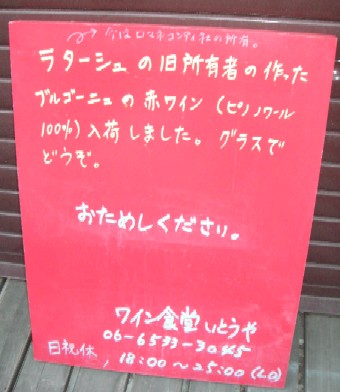 今はロマネコンティ社の所有。
ラターシュの旧所有者の作った
ブルゴーニュの赤ワイン（ピノノワール
100%）入荷しました。グラスで
どうぞ。
おためしください。
ワイン食堂いとうや
06-6533-3045
日祝休, 18:00〜25:00（LO）